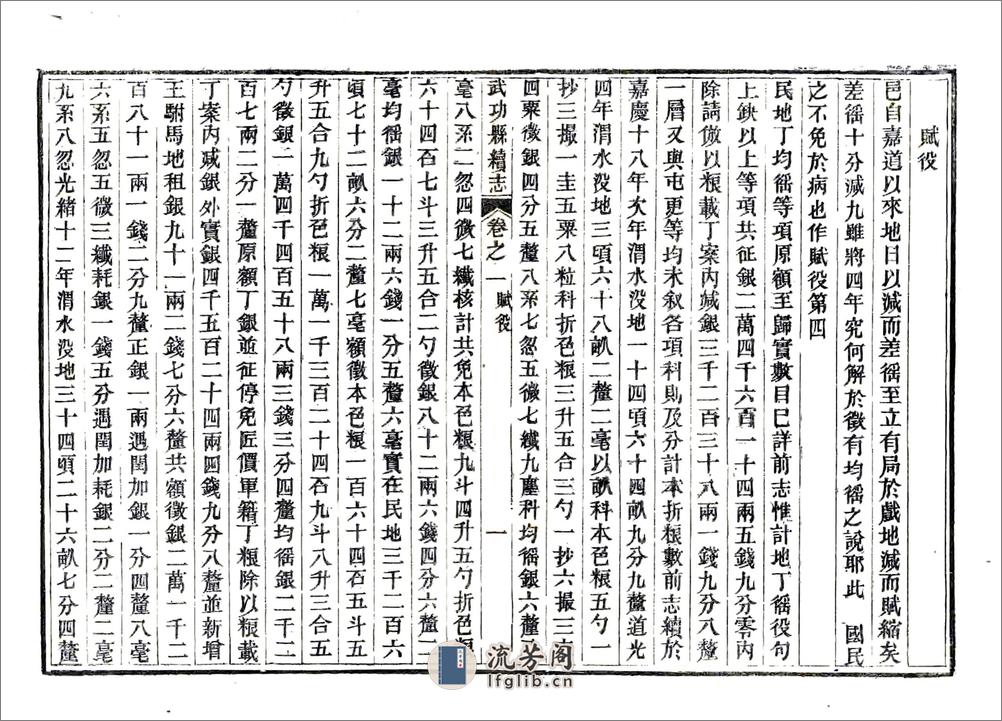 賦役
邑自嘉道以來地日以減而差徭至立有局於戲地減而賦縮矣
差徭十分減九雖將四年究何解於徵有均徭之說耶此 國民
之不免於病也作賦役第四
民地丁均徭等項原額至歸實數目已詳前志惟計地丁徭役句
上鈌以上等項共征銀二萬四千六百一十四兩五錢九分零內
除請倣以粮載丁案內減銀三千二百三十八兩一錢九分八釐
一層又與屯更等均未叙各項科則及分計本折粮數前志續於
嘉慶十八年次年渭水没地一十四頃六十四畝九分九釐道光
四年渭水没地三頃六十八畝二釐二毫以畝科本色粮五勺一
抄三撮一圭五粟八粒科折色粮三升五合三勺一抄六撮三圭
四粟徵銀四分五釐八系七忽五微七纖九塵科均徭銀六釐二
武功縣續志 卷之一 賦役 一
毫八系二忽四微七纖核計共免本色粮九斗四升五勺折色粮
六十四石七斗三升五合二勺徵銀八十二兩六錢四分六釐一
毫均徭銀一十二兩六錢一分五釐六毫實在民地三千二百六
頃七十二畝六分二釐七毫額徵本色粮一百六十四石五斗五
升五合九勺折色粮一萬一千三百二十四石九斗八升三合五
勺徵銀一萬四千四百五十八兩三錢三分四釐均徭銀二千二
百七兩二分一釐原額丁銀並征停免匠價軍籍丁粮除以粮載
丁案內減銀外實銀四千五百二十四兩四錢九分八釐並新增
王駙馬地租銀九十一兩二錢七分六釐共額徵銀二萬一千二
百八十一兩一錢二分九釐正銀一兩遇閏加銀一分四釐八毫
六系五忽五微三纖耗銀一錢五分遇閏加耗銀二分二釐二毫
九系八忽光緒十二年渭水没地三十四頃二十六畝七分四釐
流芳阁
lfglib.cn